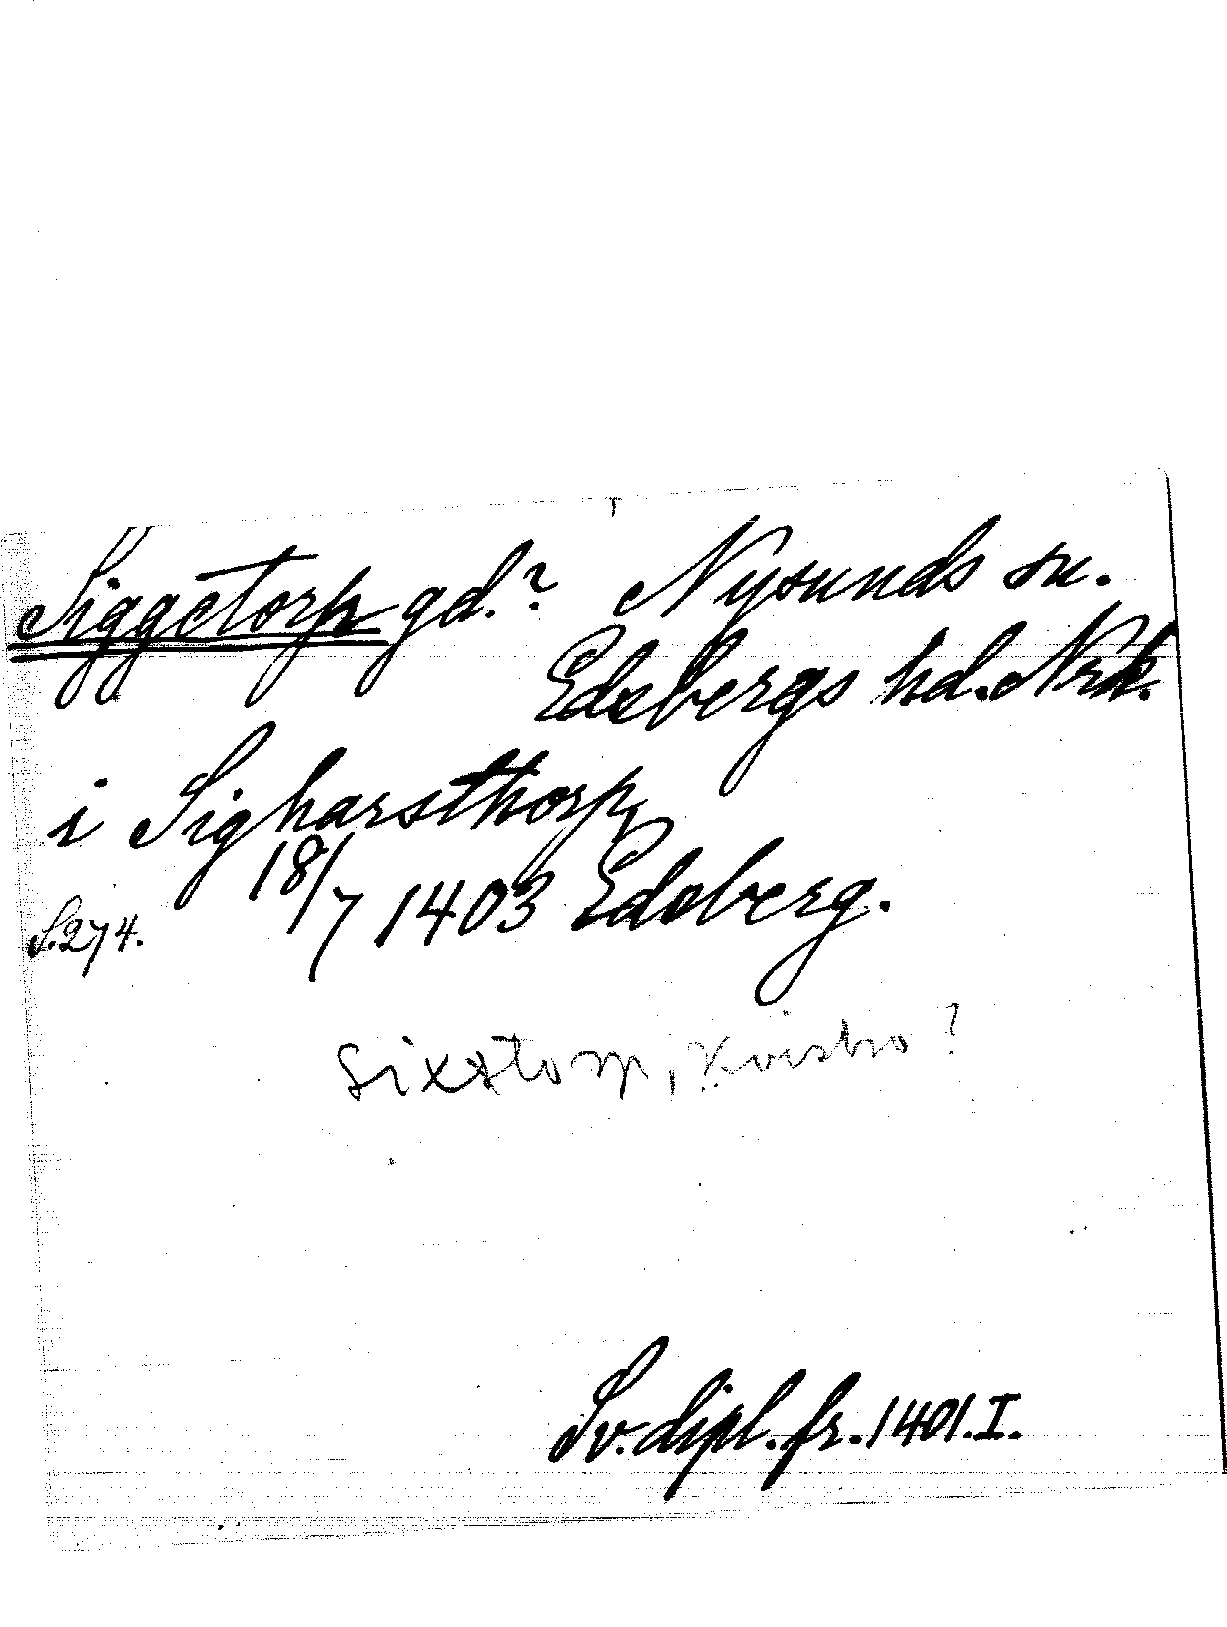 Siggetorp gd.? Nysunds sn.
Edsbergs hd. Nrk.
i Sigharsthorp
18/7 1403 Edsberg.
S.274.
Sixstorp, Kvistbro?
Sv. dipl. fr. 1401. I.